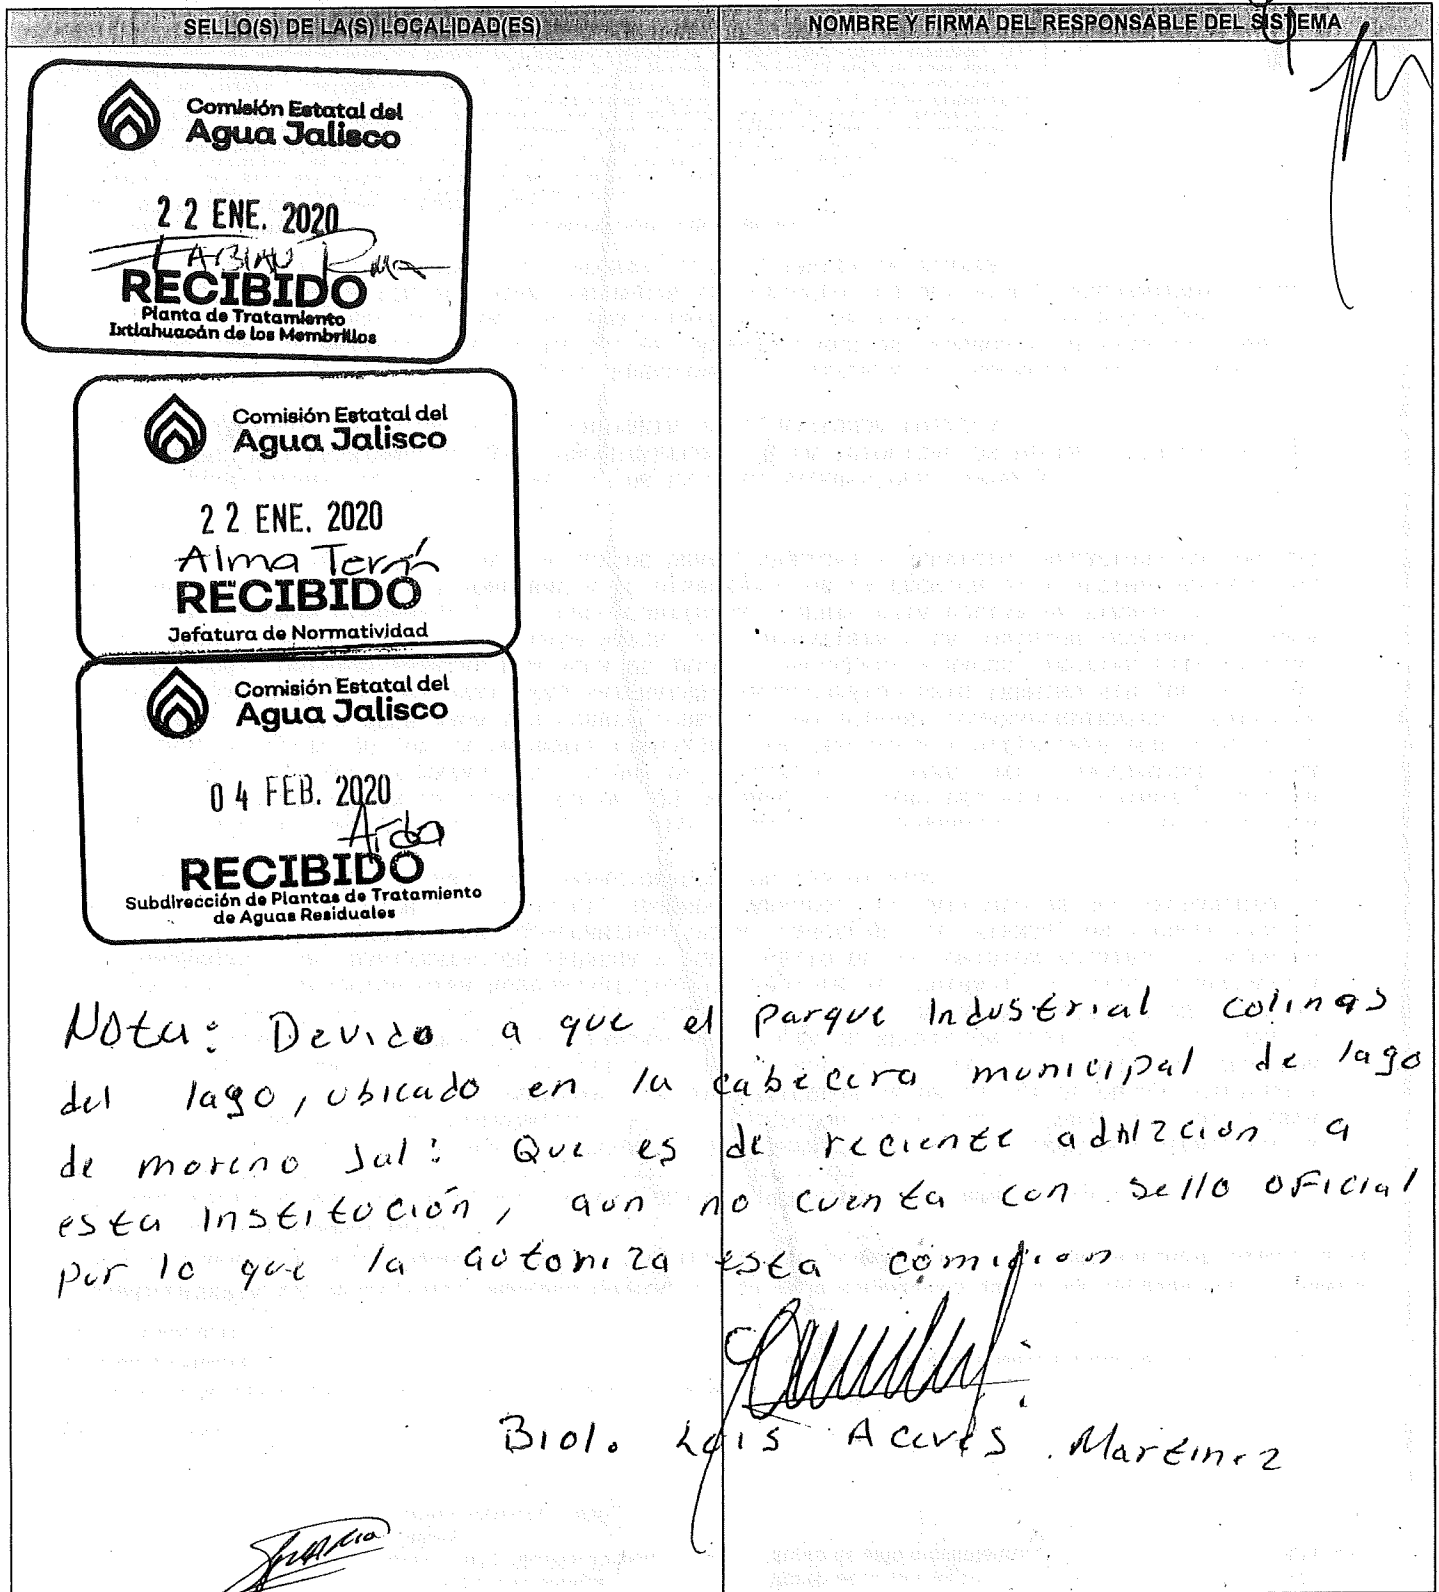 SELLO(S) DE LA(S) LOCALIDAD(ES)
NOMBRE Y FIRMA DEL RESPONSABLE DEL SISTEMA
Comisión Estatal del
Agua Jalisco
2 2 ENE. 2020
FABIAN
RECIBIDO
Planta de Tratamiento
Ixtlahuacán de los Membrillos
Comisión Estatal del
Agua Jalisco
2 2 ENE. 2020
Alma Terán
RECIBIDO
Jefatura de Normatividad
Comisión Estatal del
Agua Jalisco
0 4 FEB. 2020
Aida
RECIBIDO
Subdirección de Plantas de Tratamiento
de Aguas Residuales
Nota: Devido a que el parque Industrial colinas
del lago, ubicado en la cabecera municipal de lago
de moreno Jal: Que es de reciente a
esta Institución, aun no cuenta con sello oficial
por lo que la autoriza esta comision
Biol. Luis Aceves Martinez